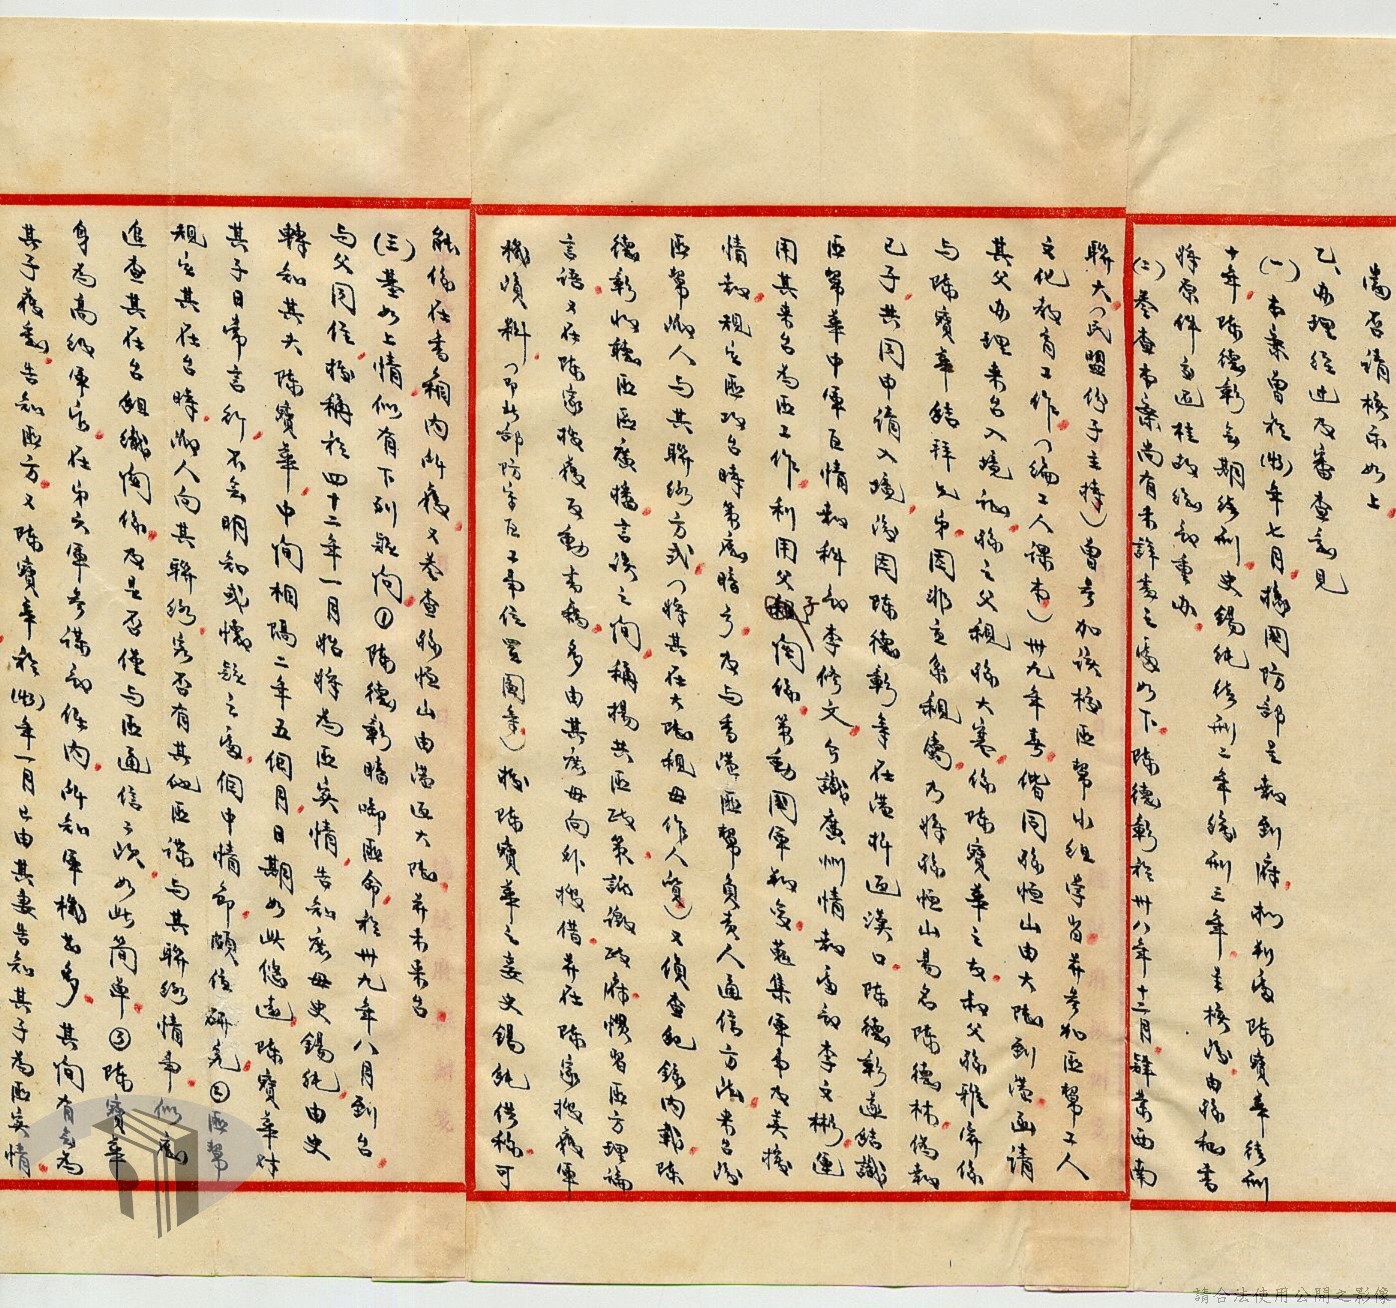 當否請核示如上
乙、辦理經過及審查意見
(一)本案曾於(43)年七月據國防部呈報到府,判處陳寶華徒刑
十年,陳德彰無期徒刑,史錫純徒刑二年緩刑三年,呈核後由孫秘書
將原件
(二)卷查本案尚有未詳養之處如下,陳德彰於卅八年十二月肄業西南
聯大(民盟份子主持)曾參加該校匪幫小組學習并參加匪幫工人
文化教育工作(編工人課本)卅九年春偕同孫恆山由大陸到港函請
其父辦理來台入境証,孫之父親孫大寒係陳寶華之友,叔父孫雅齊係
與陳寶華結拜兄弟,因非直系親屬,乃將孫恆山易名陳德林,偽報
己子共同申請入境,後因陳德彰等在港折返漢口,陳德彰遂結識
匪幫華中軍區情報科部李修文,介識廣州情報處部李文彬,運
用其來台為匪工作,利用父子關係策動國軍叛變,蒐集軍事及美援
情報,規定匪攻台時策應暗号及與香港匪幫負責人通信方法,來台後
匪幫派人與其聯絡方式(將其在大陸親母作人質)又偵查紀錄內載陳
德彰收聽匪區廣播,言談之間稱揚共匪政策,詆譭政府,慣習匪方理論
言語,又在陳家搜獲反動書籍多由其庶母向外搜借,并在陳家搜獲軍
機資料(即北部防守區工事位置圖等)據陳寶華之妾史錫純供稱,可
能係在書箱內所獲,又卷查孫恆山由港返大陸并未來台
(三)基如上情似有下列疑問①陳德彰暗啣匪命,於卅九年八月到台
與父同住,據稱於四十二年一月始將為匪實情告知庶母史錫純,由史
轉知其夫陳寶華,中間相隔二年五個月,日期如此悠遠,陳寶華對
其子日常言行不無明知或懷疑之處,個中情節頗值研究②匪幫
規定其在台時派人向其聯絡,究否有其他匪諜與其聯絡情事,似應
追查其在台組織關係,及是否僅與匪通信三次,如此簡單③陳寶華
身為高級軍官,在第六軍參謀部任內,所知軍機甚多,其間有無為
其子獲悉,告知匪方,又陳寶華於(43)年一月已由其妻告知其子為匪實情
請合法使用公開之影像